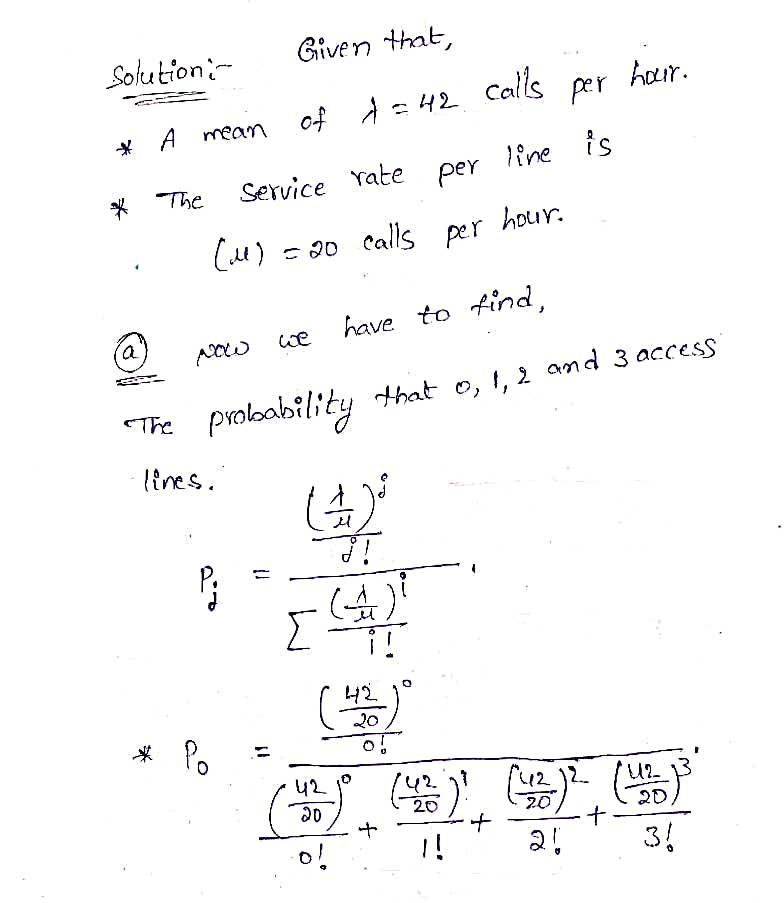 Solution:- Given that,
* A mean of λ = 42 calls per hour.
* The service rate per line is
(μ) = 20 calls per hour.
(a) Now we have to find,
The probability that 0, 1, 2 and 3 access
lines.
P_j = ((λ/μ)^j / j!) / (Σ (λ/μ)^i / i!).
* P_0 = ((42/20)^0 / 0!) / ((42/20)^0 / 0! + (42/20)^1 / 1! + (42/20)^2 / 2! + (42/20)^3 / 3!)